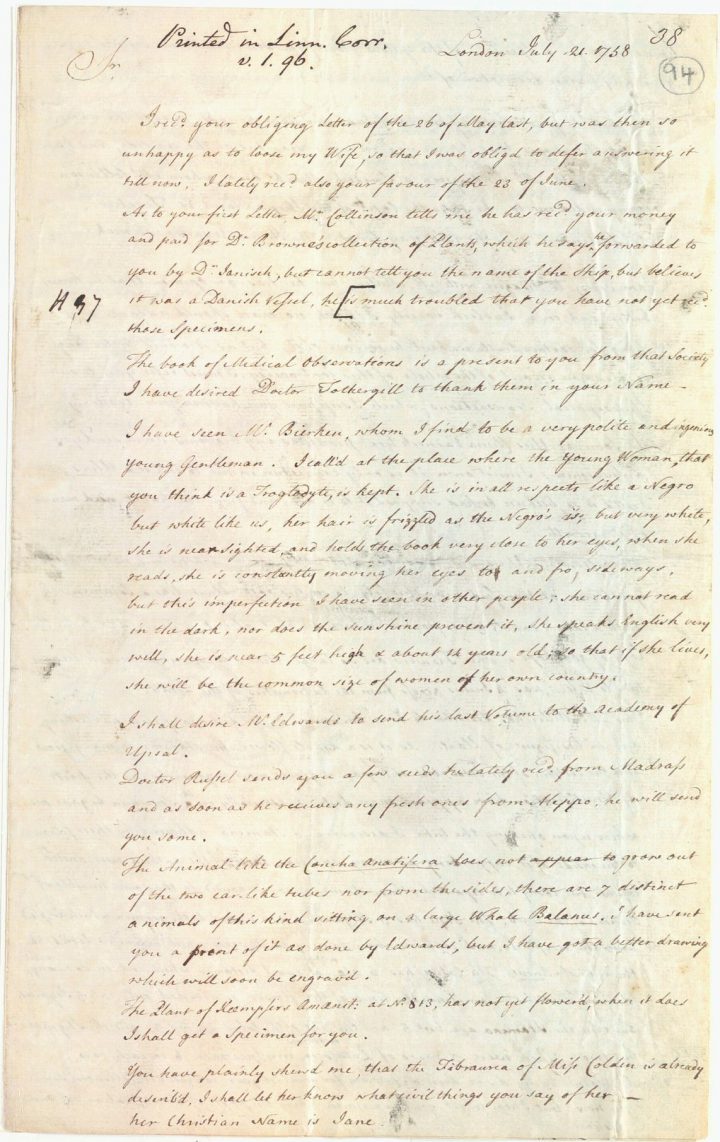 Printed in Linn. Corr.
v. 1. 96.
38
94
Sr.
London July 21. 1758
I recd. your obliging Letter of the 26 of May last, but was then so
unhappy as to loose my Wife, so that I was obligd to defer answering it
till now. I lately recd. also your favour of the 23 of June.
As to your first Letter, Mr. Collinson tells me he has recd. your money
and paid for Dr. Browne's collection of Plants, which he says he forwarded to
you by Dr. Janisch, but cannot tell you the name of the Ship, but believes
H 37
it was a Danish Vessel, he [is much troubled that you have not yet recd.
those Specimens.
The book of Medical Observations is a present to you from that Society
I have desired Doctor Fothergill to thank them in your Name –
I have seen Mr. Bierken, whom I find to be a very polite and ingenious
young Gentleman. I call'd at the place where the young Woman, that
you think is a Troglodyte, is kept. She is in all respects like a Negro
but white like us, her hair is frizzled as the Negro's is, but very white,
she is near sighted, and holds the book very close to her eyes, when she
reads, she is constantly moving her eyes to and fro, sideways,
but this imperfection I have seen in other people; she cannot read
in the dark, nor does the sunshine prevent it, she speaks English very
well, she is near 5 feet high & about 14 years old, so that if she lives,
she will be the common size of women of her own country.
I shall desire Mr. Edwards to send his last Volume to the Academy of
Upsal.
Doctor Russel sends you a few seeds he lately recd. from Madrass
and as soon as he receives any fresh ones from Aleppo, he will send
you some.
The Animal like the Concha anatifera does not appear to grow out
of the two ear-like tubes nor from the sides, there are 7 distinct
animals of this kind sitting on a large Whale Balanus. I have sent
you a print of it as done by Edwards, but I have got a better drawing
which will soon be engrav'd.
The Plant of Kæmpfirs Amænit: at No. 813, has not yet flower'd, when it does
I shall get a Specimen for you.
You have plainly shewd me, that the Fibraurea of Miss Colden is already
describ'd, I shall let her know what civil things you say of her –
her Christian Name is Jane.